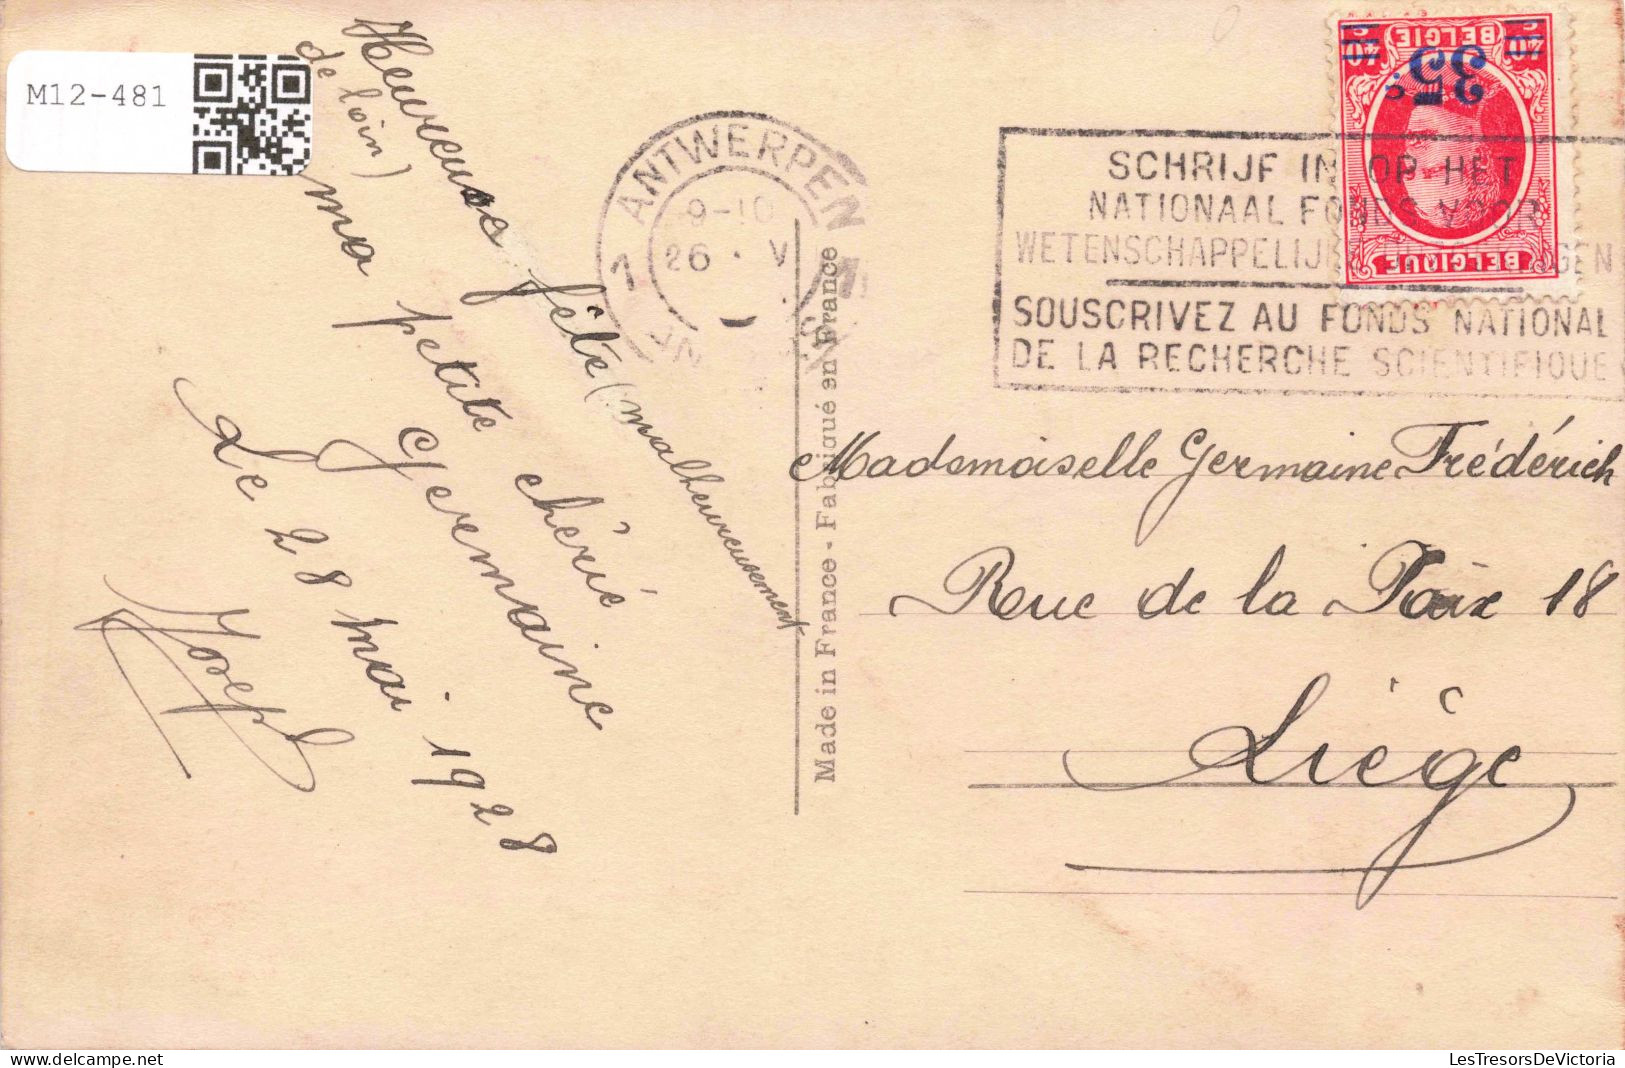 M12-481
Heureuse fête (malheureusement
de loin)
ma petite chérie
Germaine
Le 28 mai 1928
Joseph
ANTWERPEN
9-10
26 . V
1
Made in France - Fabriqué en France
SCHRIJF IN OP HET
NATIONAAL FONDS VOOR
WETENSCHAPPELIJK
SOUSCRIVEZ AU FONDS NATIONAL
DE LA RECHERCHE SCIENTIFIQUE
BELGIE
40
c 40
35 c
BELGIQUE
Mademoiselle Germaine Frédérich
Rue de la Paix 18
Liège
LesTresorsDeVictoria